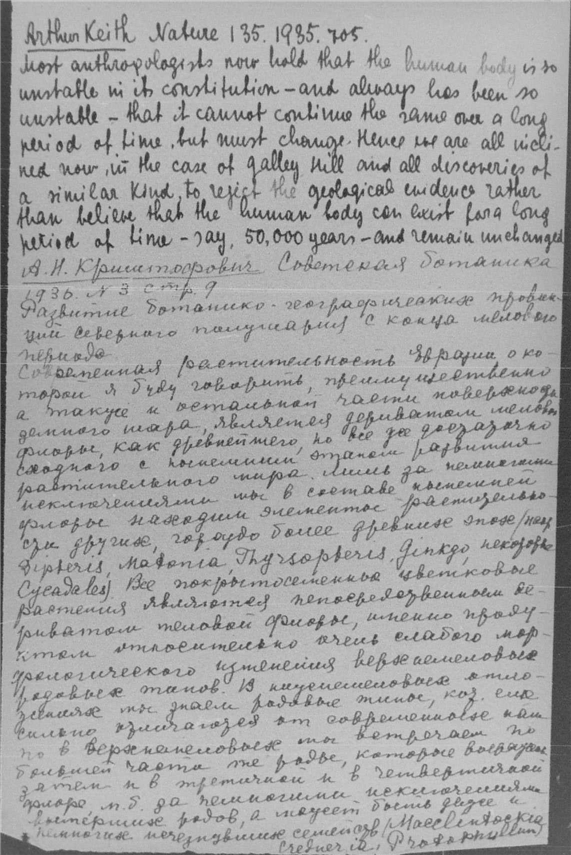 Arthur Keith Nature 135. 1935. 705.
Most anthropologists now hold that the human body is so
unstable in its constitution – and always has been so
unstable – that it cannot continue the same over a long
period of time, but must change. Hence we are all incli-
ned now, in the case of Galley Hill and all discoveries of
a similar kind, to reject the geological evidence rather
than believe that the human body can exist for a long
period of time – say, 50,000 years – and remain unchanged
А. Н. Криштофович Советская ботаника
1936. N 3 стр. 9
Развитие ботанико-географических провин-
ций северного полушария с конца мелового
периода.
Современная растительность Евразии, о ко-
торой я буду говорить, преимущественно
а также и остальной части поверхности
земного шара, является дериватом меловой
флоры, как древнейшего, но все же достаточно
сходного с последним этапом развития
растительного мира. Лишь за немногими
исключениями мы в составе последней
флоры находим элементов растительно-
сти других, гораздо более древних эпох (
Dipteris, Matonia, Thyrsopteris, Ginkgo, некоторые
Cycadales). Все покрытосеменные цветковые
растения являются непосредственным де-
риватом меловой флоры, именно проду-
ктом относительно очень слабого мор-
фологического изменения верхнемеловых
родовых типов. В нижнемеловых отло-
жениях мы знаем родовые типы, кот. еще
сильно отличаются от современных нам
но в верхнемеловых мы встречаем по
большей части те же роды, которые
затем и в третичной и в четвертичной
флоре, м. б. за немногими исключениями
вымерших родов, а может быть даже и
немногих исчезнувших семейств (Macclintockia
Credneria, Protophyllum)